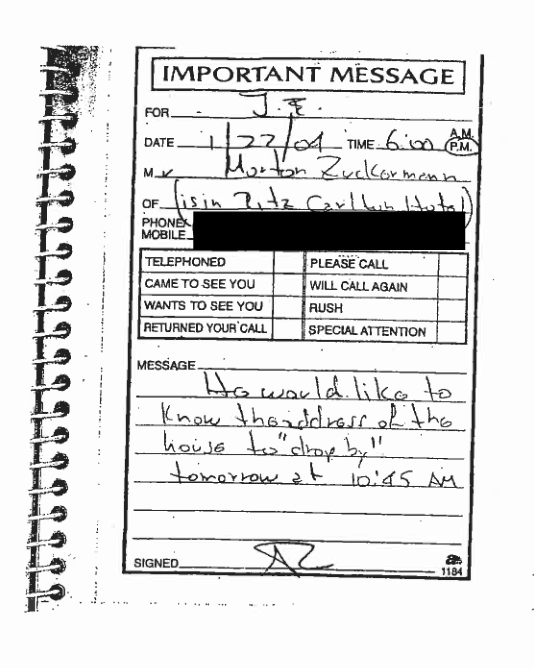 IMPORTANT MESSAGE
FOR J.E.
DATE 1/22/04 TIME 6:00 A.M. P.M.
M r Morton Zuckermann
OF (is in Ritz Carlton Hotel)
PHONE
MOBILE
TELEPHONED PLEASE CALL
CAME TO SEE YOU WILL CALL AGAIN
WANTS TO SEE YOU RUSH
RETURNED YOUR CALL SPECIAL ATTENTION
MESSAGE
He would like to
know the address of the
house to "drop by"
tomorrow at 10:45 AM
SIGNED
1184